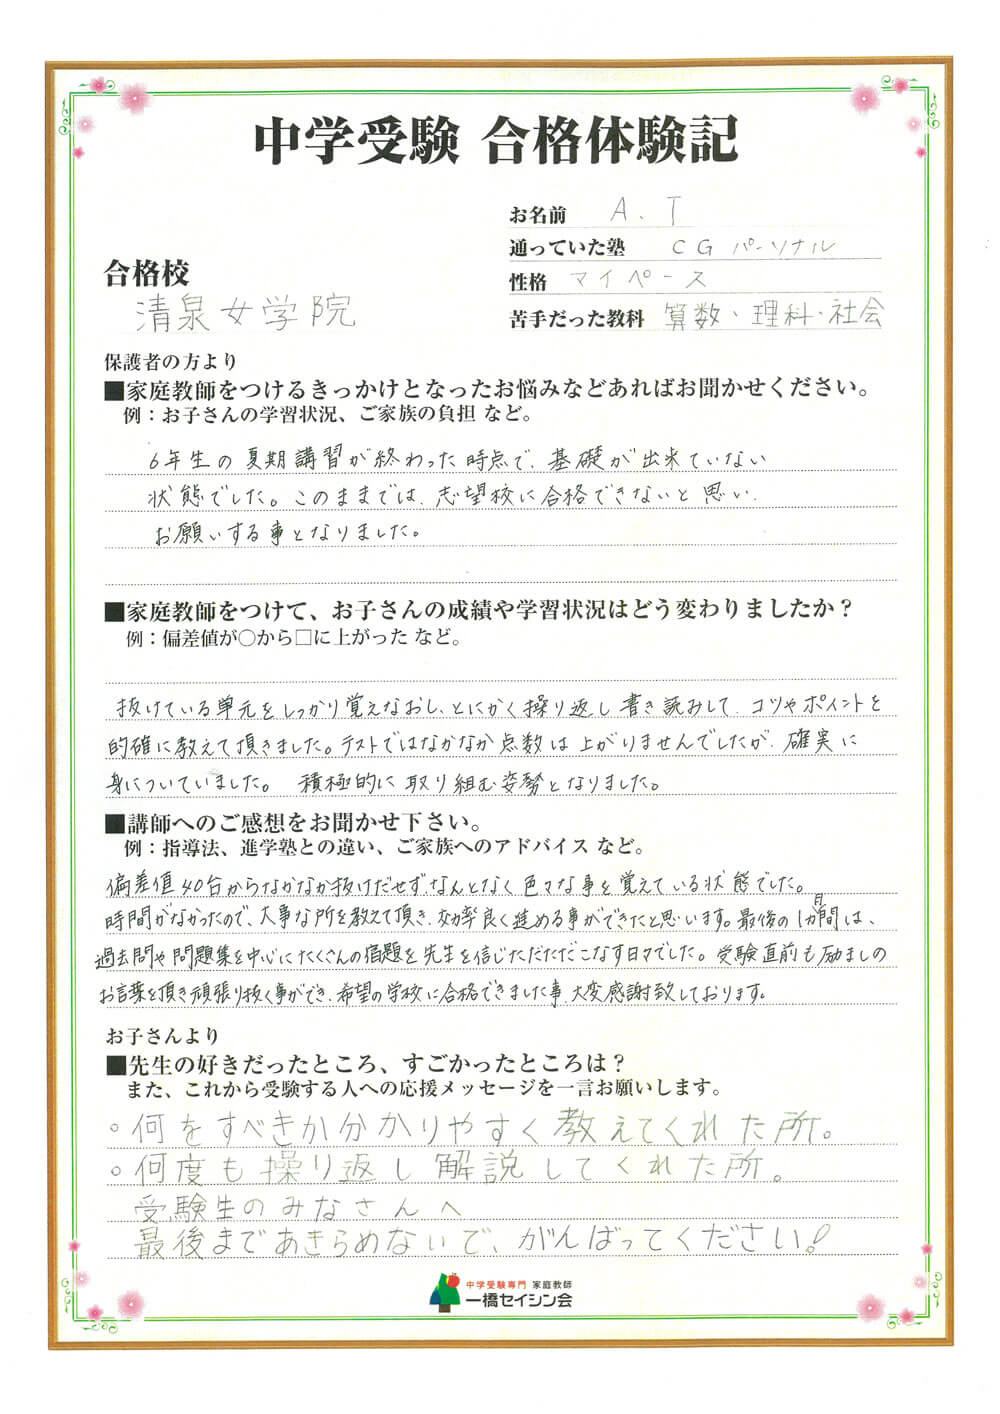 中学受験 合格体験記
お名前 A.T
通っていた塾 CGパーソナル
合格校
性格 マイペース
清泉女学院
苦手だった教科 算数、理科・社会
保護者の方より
■家庭教師をつけるきっかけとなったお悩みなどあればお聞かせください。
例：お子さんの学習状況、ご家族の負担 など。
6年生の夏期講習が終わった時点で、基礎が出来ていない
状態でした。このままでは、志望校に合格できないと思い、
お願いする事となりました。
■家庭教師をつけて、お子さんの成績や学習状況はどう変わりましたか？
例：偏差値が○から□に上がった など。
抜けている単元をしっかり覚えなおし、とにかく操り返し書き読みして、コツやポイントを
的確に教えて頂きました。テストではなかなか点数は上がりませんでしたが、確実に
身についていました。 積極的に取り組む姿勢となりました。
■講師へのご感想をお聞かせ下さい。
例：指導法、進学塾との違い、ご家族へのアドバイス など。
偏差値40台からなかなか抜けだせず、なんとなく色々な事を覚えている状態でした。
時間がなかったので、大事な所を教えて頂き、効率良く進める事ができたと思います。最後の1か月間は、
過去問や問題集を中心にたくさんの宿題を先生を信じただただこなす日々でした。受験直前も励ましの
お言葉を頂き頑張り抜く事ができ、希望の学校に合格できました事、大変感謝致しております。
お子さんより
■先生の好きだったところ、すごかったところは？
また、これから受験する人への応援メッセージを一言お願いします。
○何をすべきか分かりやすく教えてくれた所。
○何度も操り返し解説してくれた所。
受験生のみなさんへ
最後まであきらめないで、がんばってください！
中学受験専門 家庭教師
一橋セイシン会